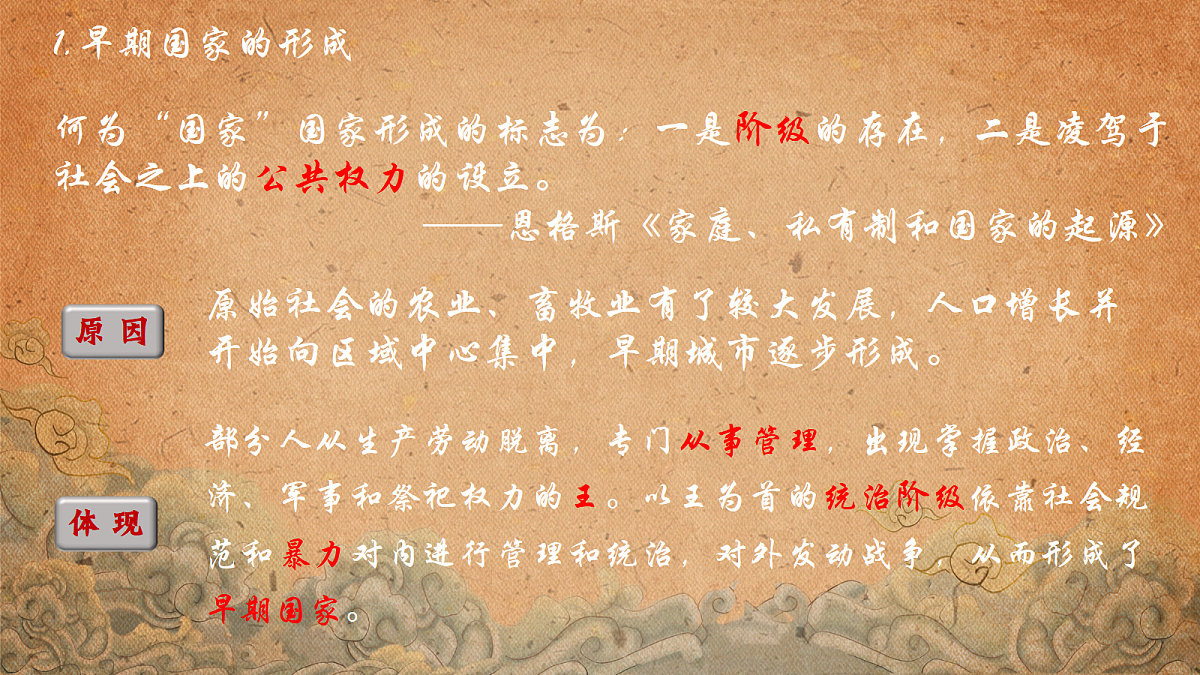 1.早期国家的形成
何为“国家”国家形成的标志为：一是阶级的存在，二是凌驾于
社会之上的公共权力的设立。
——恩格斯《家庭、私有制和国家的起源》
原因
原始社会的农业、畜牧业有了较大发展，人口增长并
开始向区域中心集中，早期城市逐步形成。
部分人从生产劳动脱离，专门从事管理，出现掌握政治、经
济、军事和祭祀权力的王。以王为首的统治阶级依靠社会规
体现
范和暴力对内进行管理和统治，对外发动战争，从而形成了
早期国家。